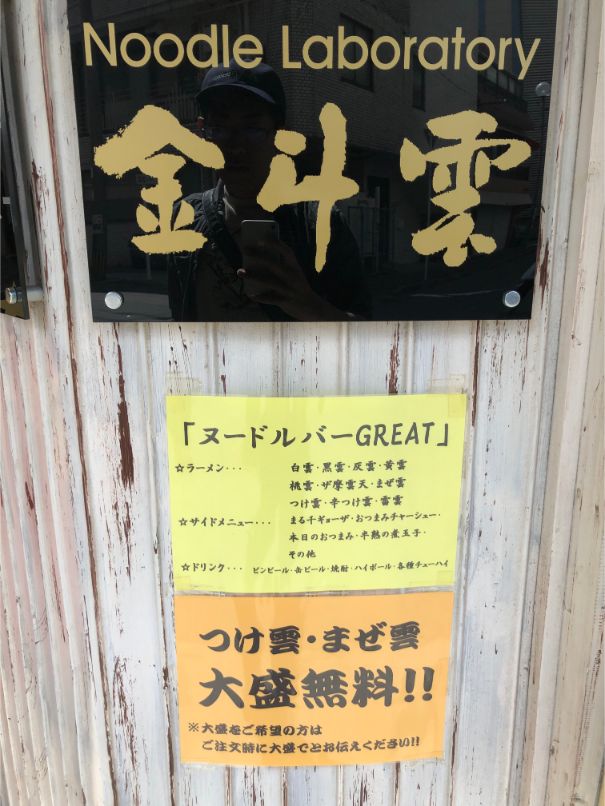 Noodle Laboratory
金斗雲
「ヌードルバーGREAT」
☆ラーメン・・・ 白雲・黒雲・灰雲・黄雲
桃雲・ザ摩雲天・まぜ雲
つけ雲・辛つけ雲・雷雲
☆サイドメニュー・・・ まる千ギョーザ・おつまみチャーシュー・
本日のおつまみ・半熟の煮玉子・
その他
☆ドリンク・・・ ビンビール・缶ビール・焼酎・ハイボール・各種チューハイ
つけ雲・まぜ雲
大盛無料!!
※大盛をご希望の方は
ご注文時に大盛でとお伝えください!!